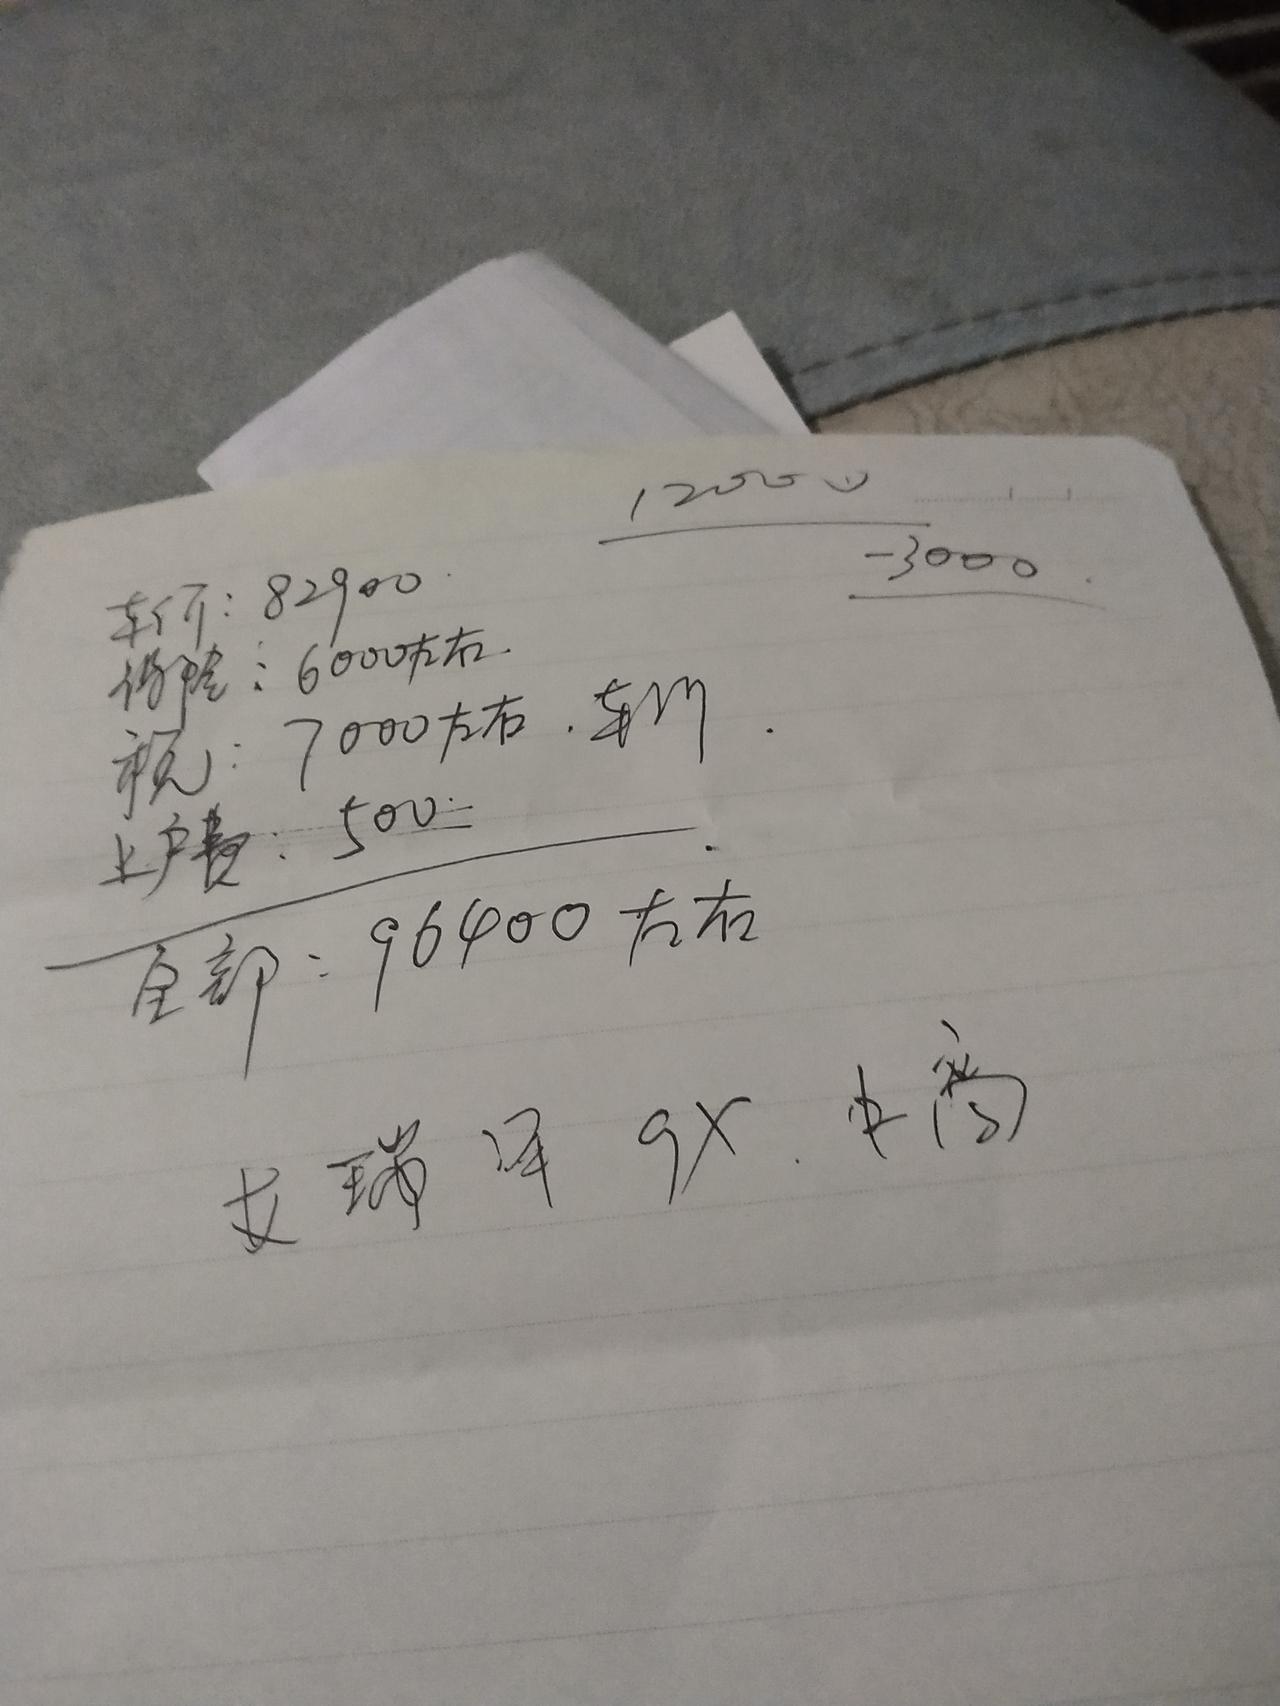 12000
-3000
车价：82900
保险：6000左右.
税：7000左右.车船.
上户费：500
全部：96400左右
艾瑞泽 gx.中高